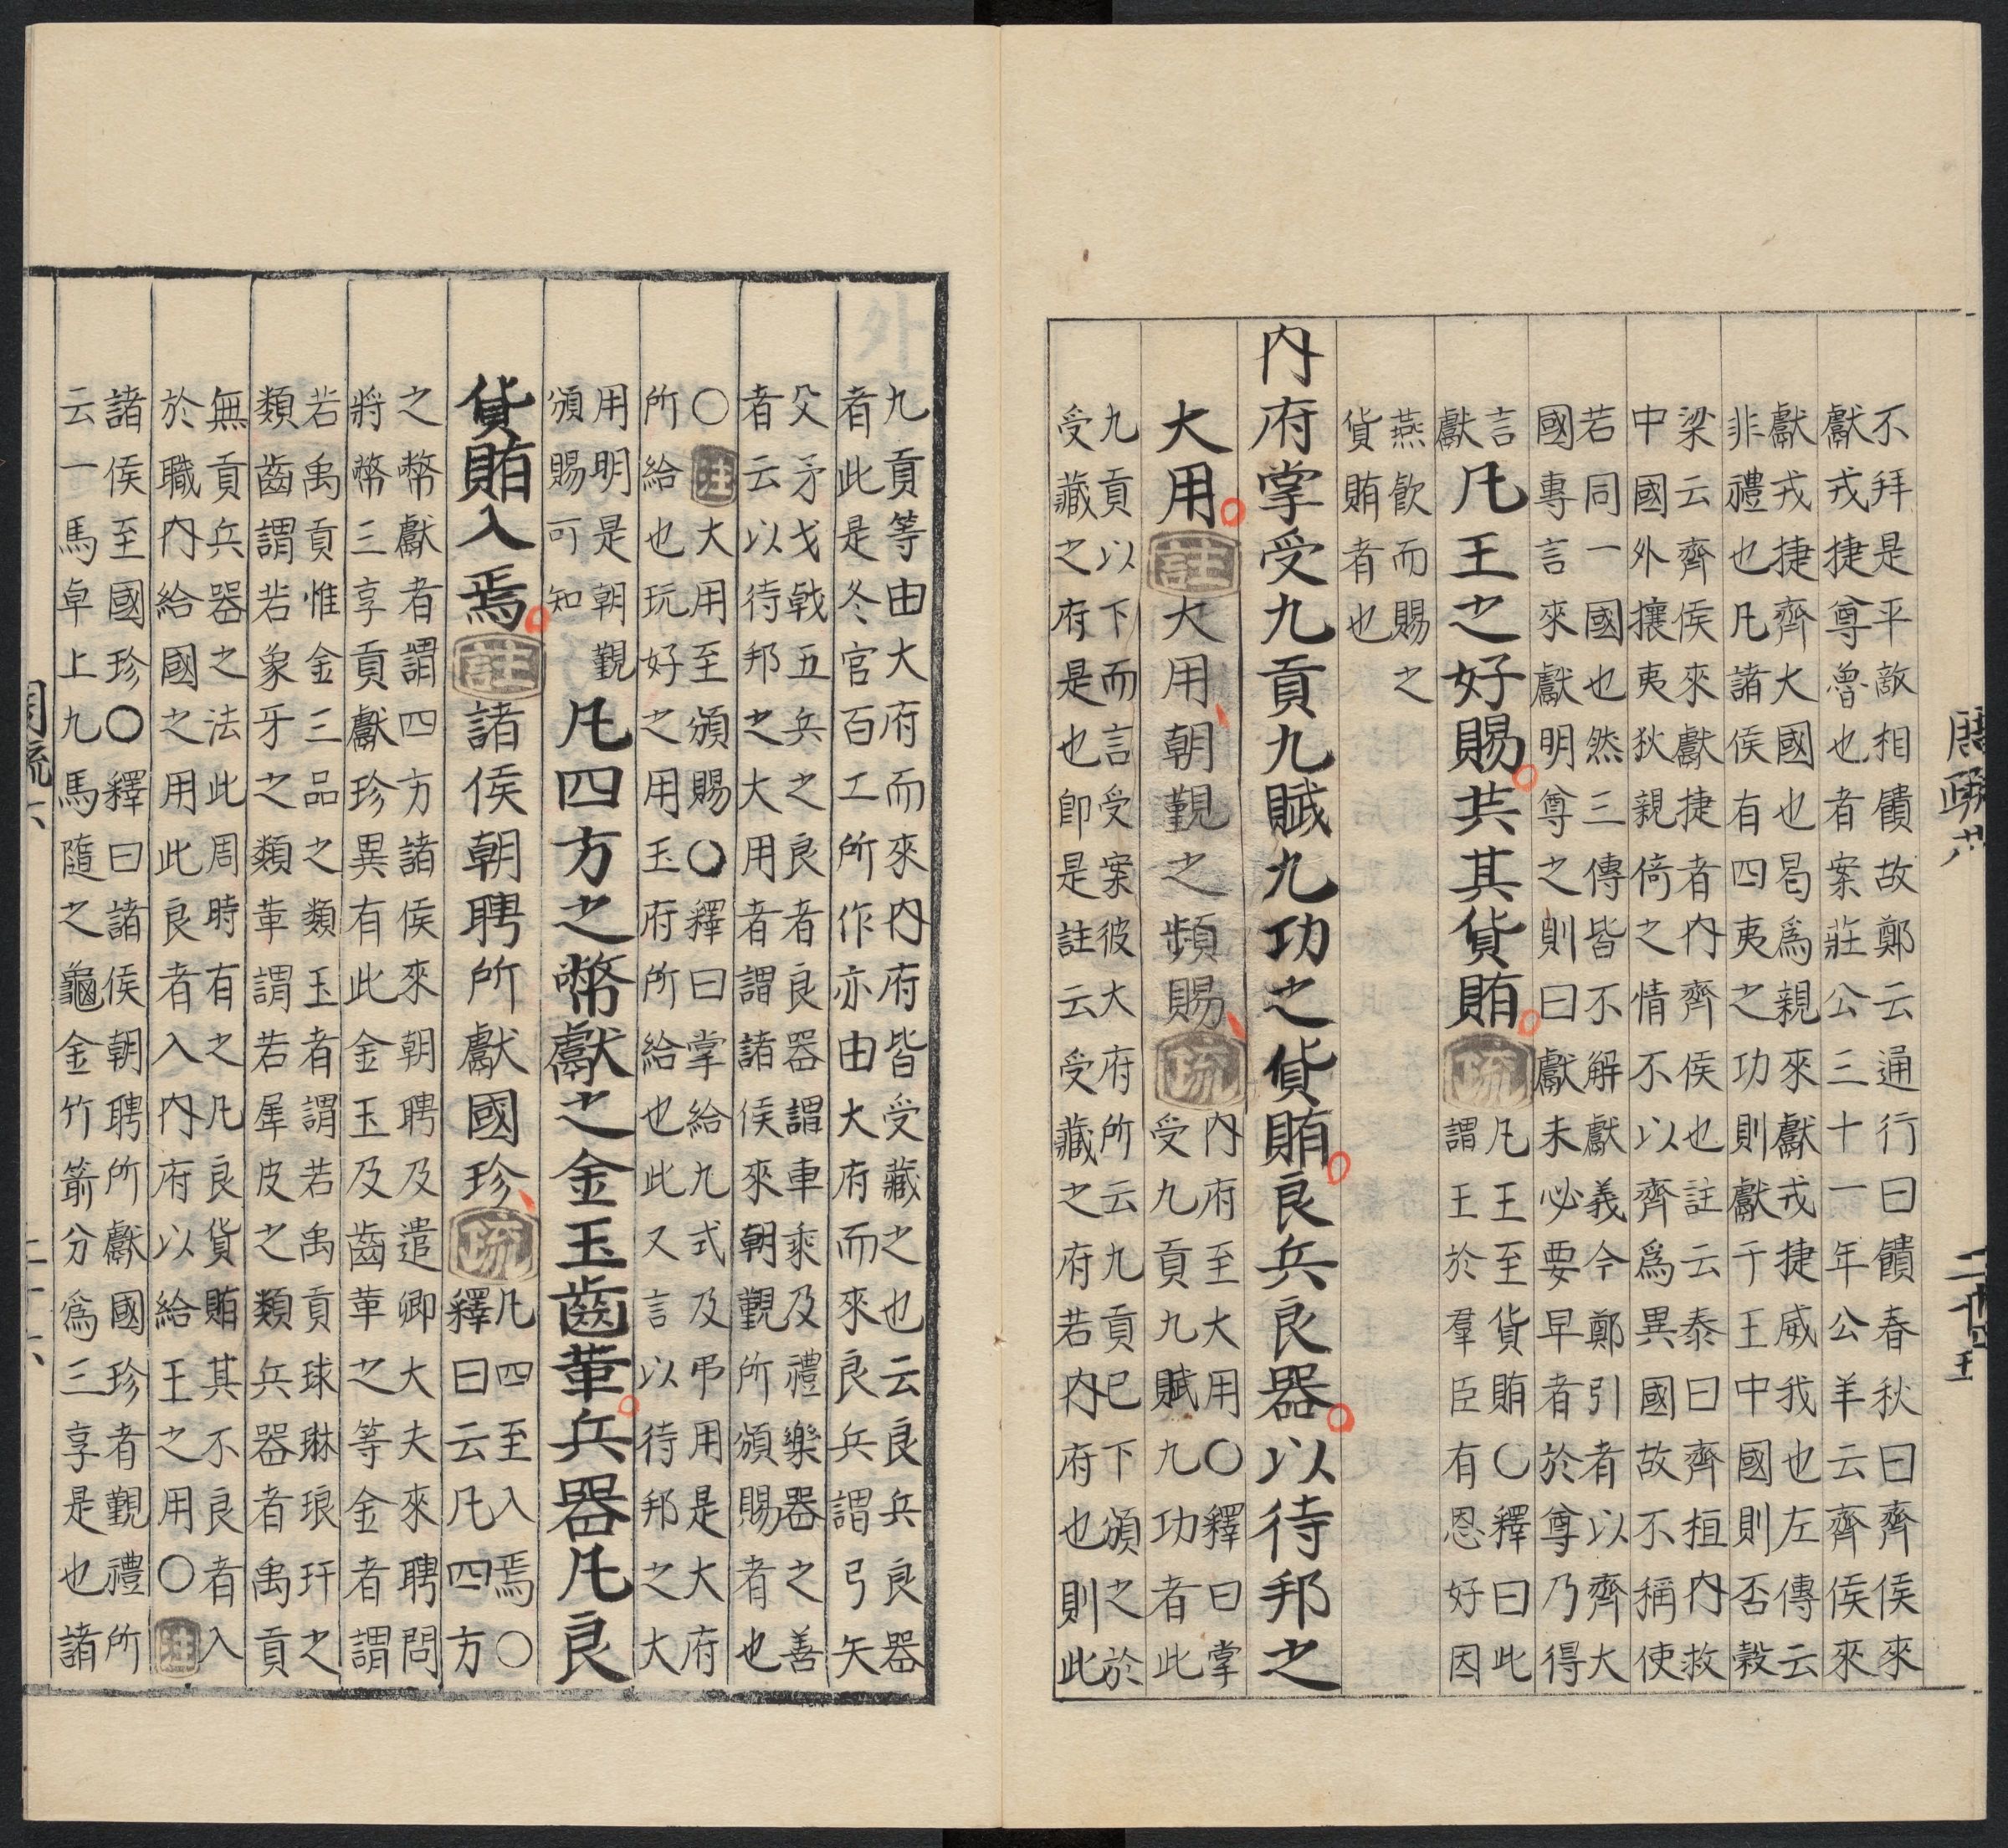 不拜是平敵相饋故鄭云通行曰饋春秋曰齊侯來
獻戎捷尊魯也者案莊公三十一年公羊云齊侯來
獻戎捷齊大國也曷爲親來獻戎捷威我也左傳云
非禮也凡諸侯有四夷之功則獻于王中國則否穀
梁云齊侯來獻捷者內齊侯也註云泰曰齊桓內救
中國外攘夷狄親倚之情不以齊爲異國故不稱使
若同一國也然三傳皆不解獻義今鄭引者以齊大
國專言來獻明尊之則曰獻未必要早者於尊乃得
言
獻
凡王之好賜共其貨賄疏
凡王至貨賄○釋曰此
謂王於羣臣有恩好因
燕飮而賜之
貨賄者也
內府掌受九貢九賦九功之貨賄良兵良器以待邦之
大用註大用朝覲之頻賜疏
內府至大用○釋曰掌
受九貢九賦九功者此
九貢以下而言受案彼大府所云九貢已下頒之於
受藏之府是也卽是註云受藏之府若內府也則此
九貢等由大府而來內府皆受藏之也云良兵良器
者此是冬官百工所作亦由大府而來良兵謂弓矢
殳矛戈戟五兵之良者良器謂車乘及禮樂器之善
者云以待邦之大用者謂諸侯來朝覲所頒賜者也
○注大用至頒賜○釋曰掌給九式及弔用是大府
所給也玩好之用玉府所給也此又言以待邦之大
用明是朝覲
頒賜可知
凡四方之幣獻之金玉齒革兵器凡良
貨賄入焉註諸侯朝聘所獻國珍疏
凡四至入焉○
釋曰云凡四方
之幣獻者謂四方諸侯來朝聘及遣卿大夫來聘問
將幣三享貢獻珍異有此金玉及齒革之等金者謂
若禹貢惟金三品之類玉者謂若禹貢球琳琅玕之
類齒謂若象牙之類革謂若犀皮之類兵器者禹貢
無貢兵器之法此周時有之凡良貨賄其不良者入
於職內給國之用此良者入內府以給王之用○注
諸侯至國珍○釋曰諸侯朝聘所獻國珍者覲禮所
云一馬卓上九馬隨之龜金竹箭分爲三享是也諸